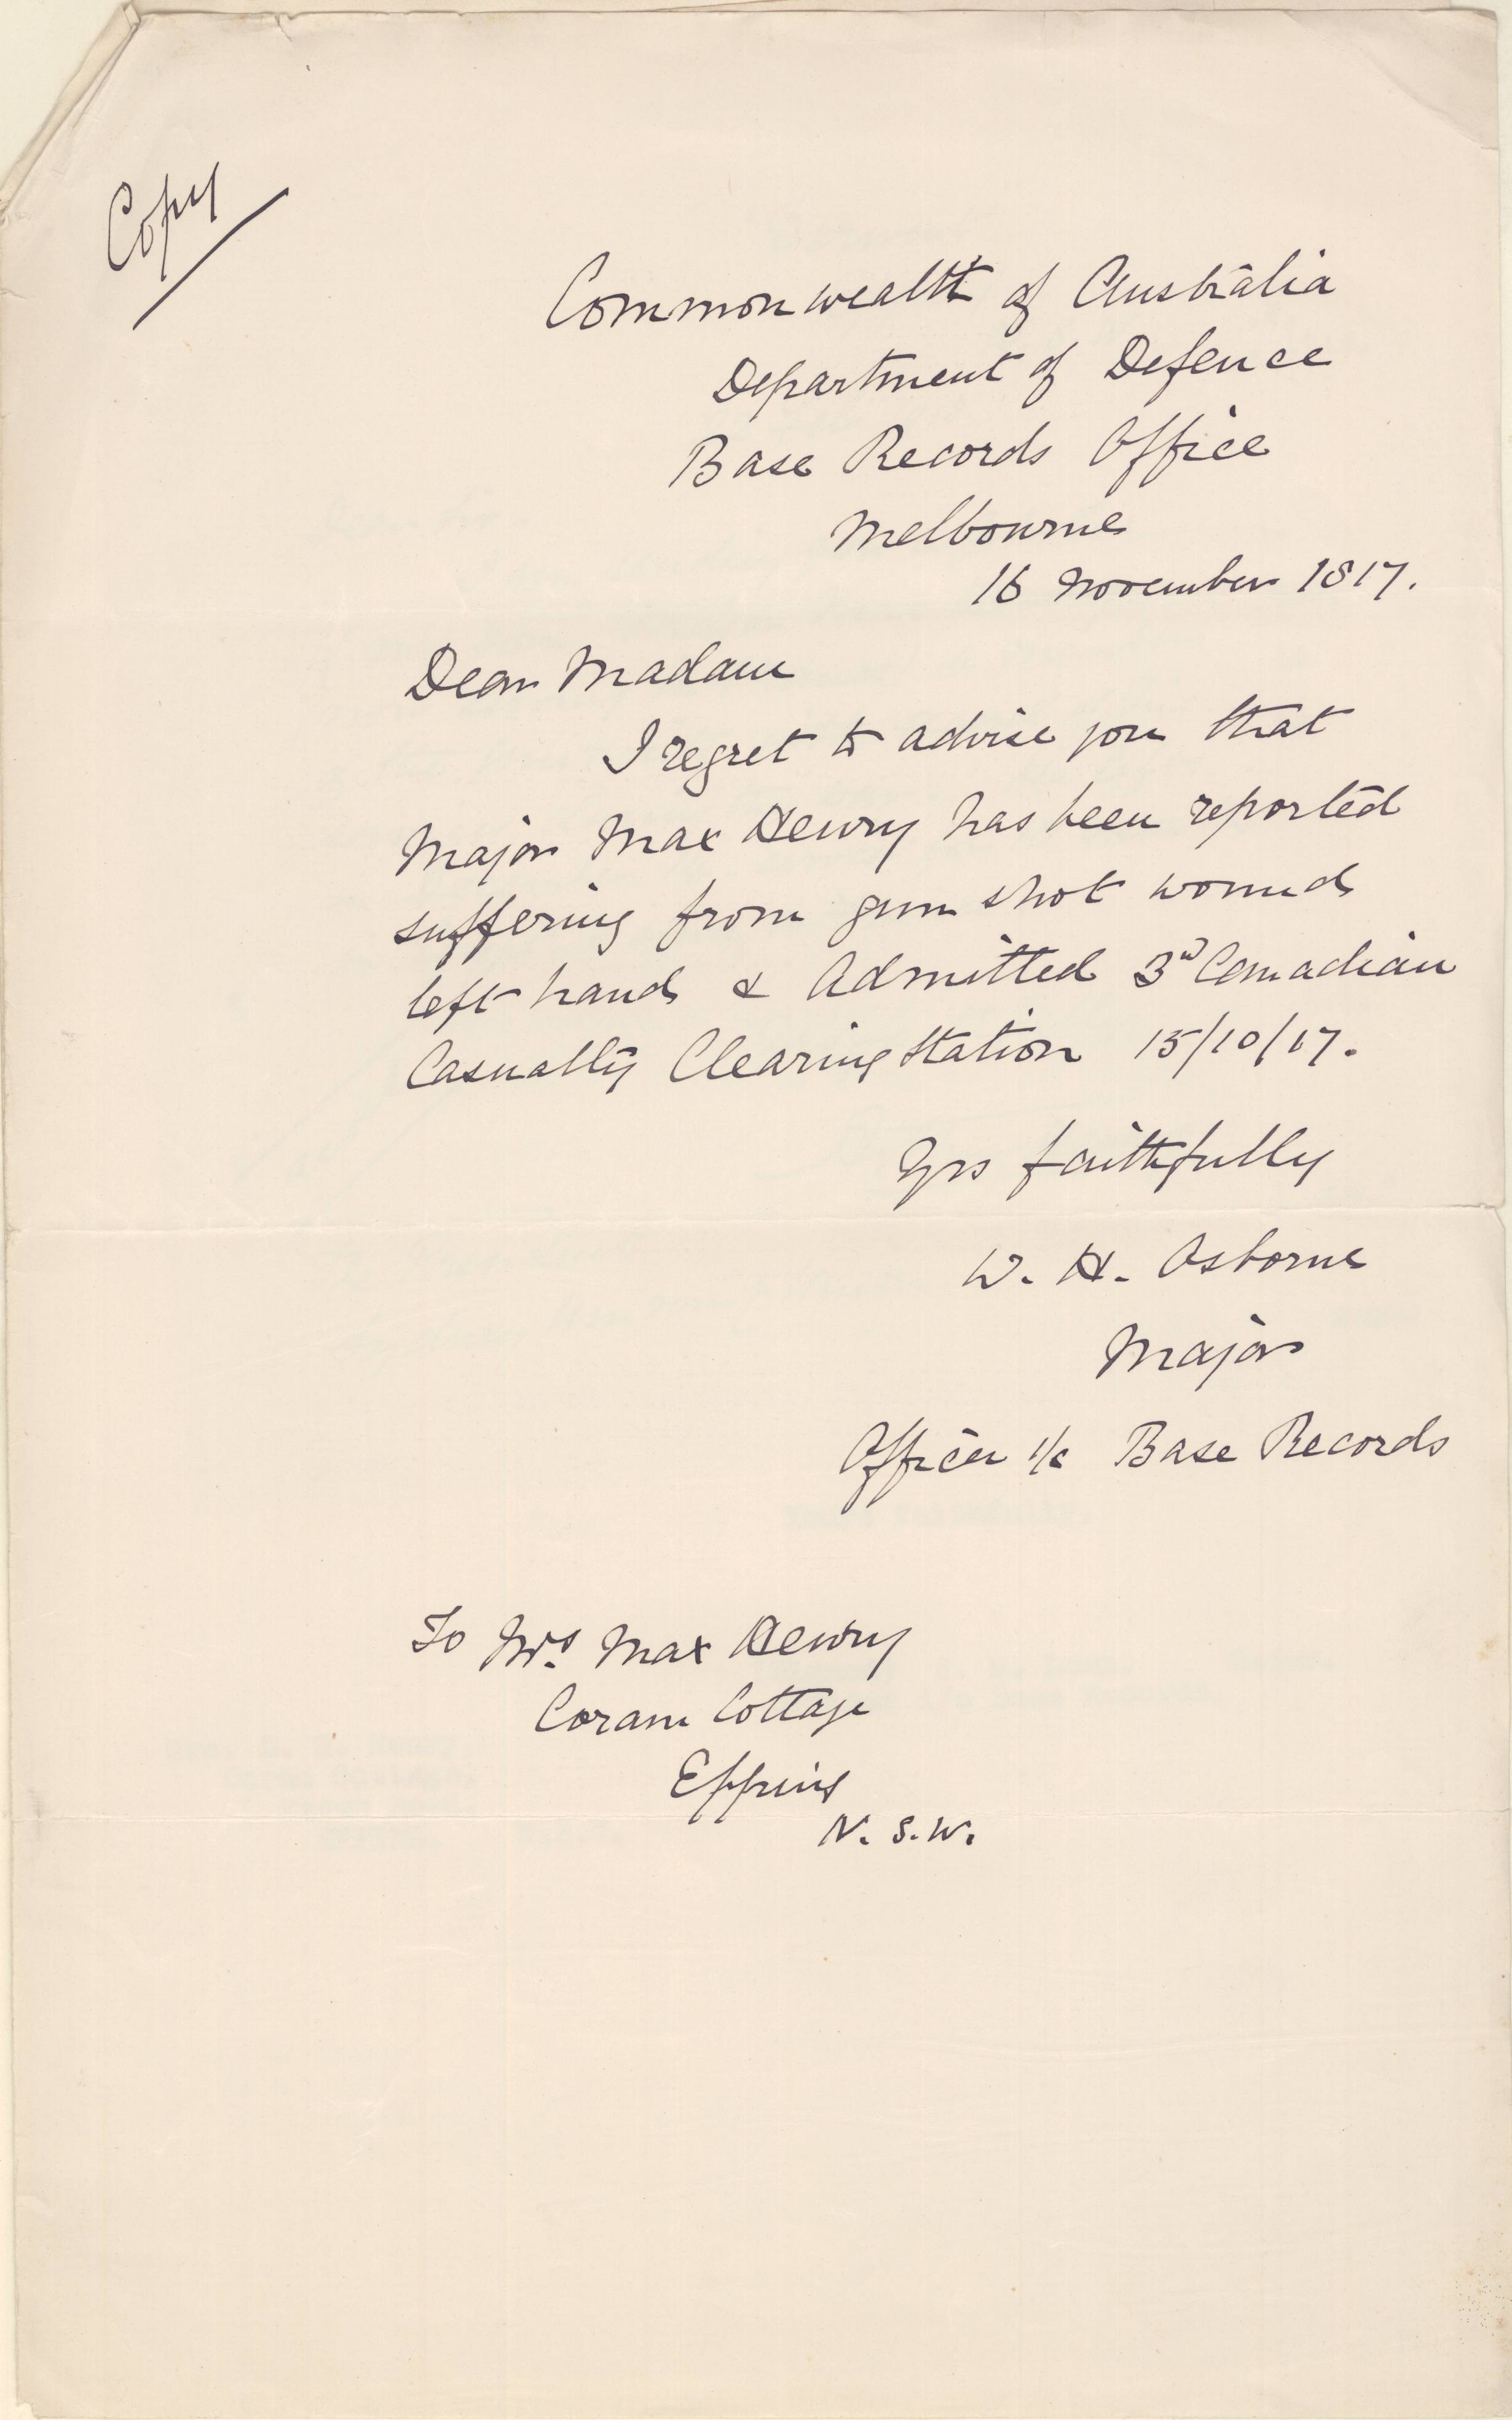 Copy
Commonwealth of Australia
Department of Defence
Base Records Office
Melbourne
16 November 1817.
Dear Madam
I regret to advise you that
Major Max Henry has been reported
suffering from gun shot wound
left hand & Admitted 3rd Canadian
Casualty Clearing Station 15/10/17.
Yrs faithfully
W. H. Osborne
Major
Officer i/c Base Records
To Mrs. Max Henry
Coram Cottage
Epping
N. S. W.